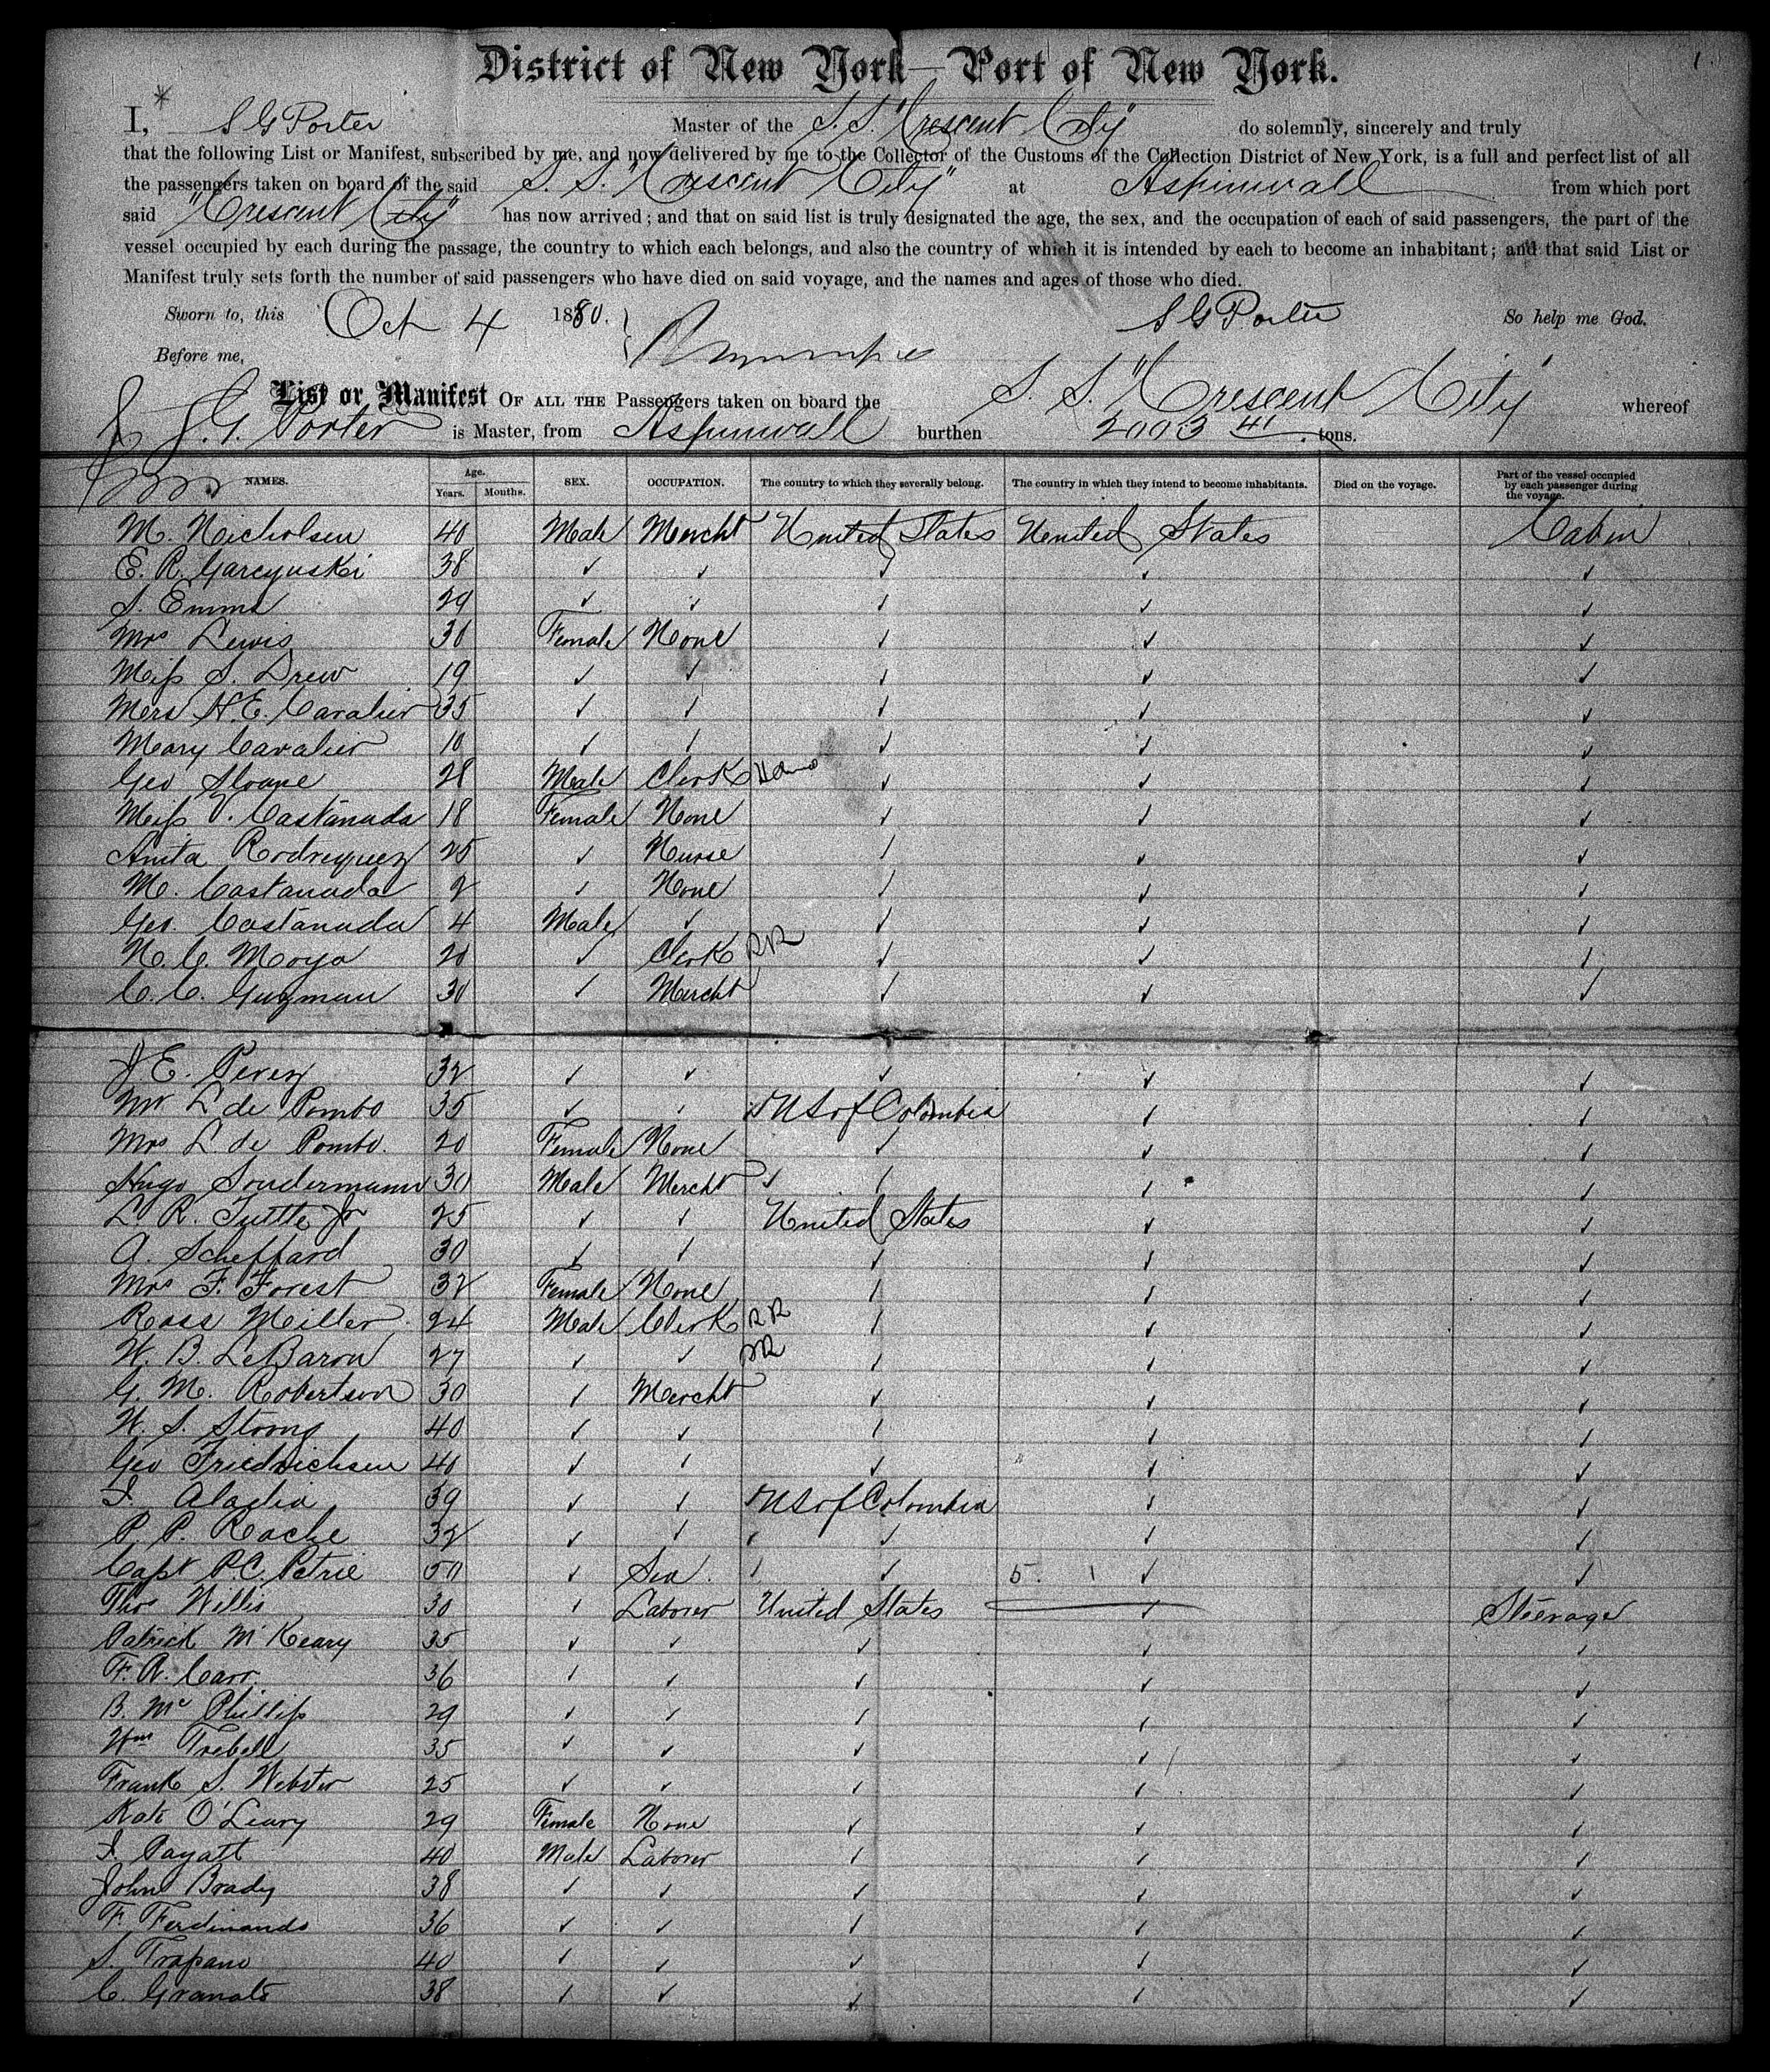 District of New York—Port of New York.
1
I, S G Porter Master of the S. S. "Crescent City" do solemnly, sincerely and truly
that the following List or Manifest, subscribed by me, and now delivered by me to the Collector of the Customs of the Collection District of New York, is a full and perfect list of all
the passengers taken on board of the said S. S. "Crescent City" at Aspinwall from which port
said "Crescent City" has now arrived; and that on said list is truly designated the age, the sex, and the occupation of each of said passengers, the part of the
vessel occupied by each during the passage, the country to which each belongs, and also the country of which it is intended by each to become an inhabitant; and that said List or
Manifest truly sets forth the number of said passengers who have died on said voyage, and the names and ages of those who died.
Sworn to, this Oct 4 1880. S G Porter So help me God.
Before me,
List or Manifest OF ALL THE Passengers taken on board the S. S. "Crescent City" whereof
S. G. Porter is Master, from Aspinwall burthen 2003 41 tons.
NAMES. Age. Years. Months. SEX. OCCUPATION. The country to which they severally belong. The country in which they intend to become inhabitants. Died on the voyage. Part of the vessel occupied by each passenger during the voyage.
M. Nicholsen 40 Male Mercht United States United States Cabin
E. R. Garcynski 38 ✓ ✓ ✓ ✓ ✓
S. Emma 29 ✓ ✓ ✓ ✓ ✓
Mrs Lewis 30 Female None ✓ ✓ ✓
Miss S. Drew 19 ✓ ✓ ✓ ✓ ✓
Mrs H. E. Cavalier 35 ✓ ✓ ✓ ✓ ✓
Mary Cavalier 10 ✓ ✓ ✓ ✓ ✓
Geo Sloane 28 Male Clerk ✓ ✓ ✓
Miss V. Castanada 18 Female None ✓ ✓ ✓
Anita Rodrequez 25 ✓ Nurse ✓ ✓ ✓
M. Castanada 2 ✓ None ✓ ✓ ✓
Geo. Castanada 4 Male ✓ ✓ ✓ ✓
N. C. Moya 20 ✓ Clerk RR ✓ ✓ ✓
C. C. Guzman 30 ✓ Mercht ✓ ✓ ✓
J. E. Perez 32 ✓ ✓ ✓ ✓ ✓
Mr L de Pombo 35 ✓ ✓ U S of Colombia ✓ ✓
Mrs L. de Pombo. 20 Female None ✓ ✓ ✓
Hugo Sondermann 30 Male Mercht ✓ ✓ ✓
L. R. Tuttle Jr 25 ✓ ✓ United States ✓ ✓
A. Scheffard 30 ✓ ✓ ✓ ✓ ✓
Mrs F. Forest 32 Female None ✓ ✓ ✓
Ross Miller 24 Male Clerk RR ✓ ✓ ✓
W. B. LeBaron 27 ✓ ✓ RR ✓ ✓ ✓
G. M. Robertson 30 ✓ Mercht ✓ ✓ ✓
W. S. Strong 40 ✓ ✓ ✓ ✓ ✓
Geo Friedrichsen 40 ✓ ✓ ✓ ✓ ✓
39 ✓ ✓ U S of Colombia ✓ ✓
P. P. Roche 32 ✓ ✓ ✓ ✓ ✓
Capt P. C. Petrie 50 ✓ Sea. ✓ 5. 1 ✓ ✓
Thos Willis 30 ✓ Laborer United States ✓ Steerage
Patrick McKeary 35 ✓ ✓ ✓ ✓ ✓
F. R. Carr. 36 ✓ ✓ ✓ ✓ ✓
B. Mc Phillips 29 ✓ ✓ ✓ ✓ ✓
Wm Trebell 35 ✓ ✓ ✓ ✓ ✓
Frank S. Webster 25 ✓ ✓ ✓ ✓ ✓
Kate O'Leary 29 Female None ✓ ✓ ✓
I. Payatt 40 Male Laborer ✓ ✓ ✓
John Brady 38 ✓ ✓ ✓ ✓ ✓
F. Ferdinando 36 ✓ ✓ ✓ ✓ ✓
S. Trapano 40 ✓ ✓ ✓ ✓ ✓
C. Granats 38 ✓ ✓ ✓ ✓ ✓